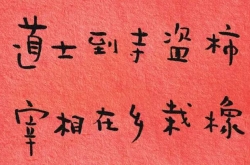 道士到手盗柿
宰相在乡栽橡